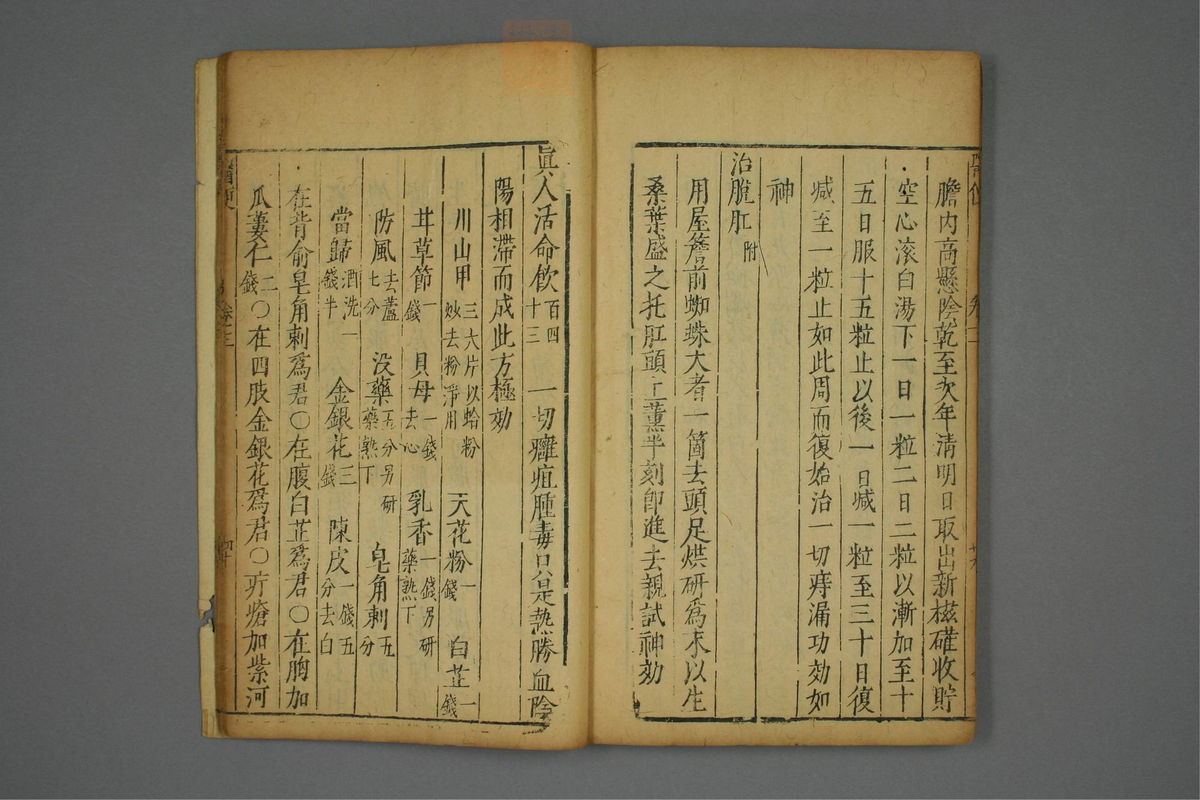 膽内高懸陰乾至次年清明日取出新磁礶收貯
空心滚白湯下一日一粒二日二粒以漸加至十
五日服十五粒止以後一日減一粒至三十日復
減至一粒止如此周而復始治一切痔漏功効如
神
治脫肛附
用屋簷前蜘蛛大者一箇去頭足烘研爲末以生
桑葉盛之托肛頭上薰半刻即進去親試神効
眞人活命飲百四十三 一切癰疽腫毒只是熱勝血陰
陽相滯而成此方極効
川山甲三大片以蛤粉炒去粉淨用 天花粉一錢 白芷一錢
甘草節一錢 貝母一錢去心 乳香一錢另研藥熟下
防風去蘆七分 没藥五分另研藥熟下 皂角刺五分
當歸酒洗一錢半 金銀花三錢 陳皮一錢五分去白
在背俞皂角刺爲君〇在腹白芷爲君〇在胸加
瓜蔞仁二錢〇在四肢金銀花爲君〇疔瘡加紫河